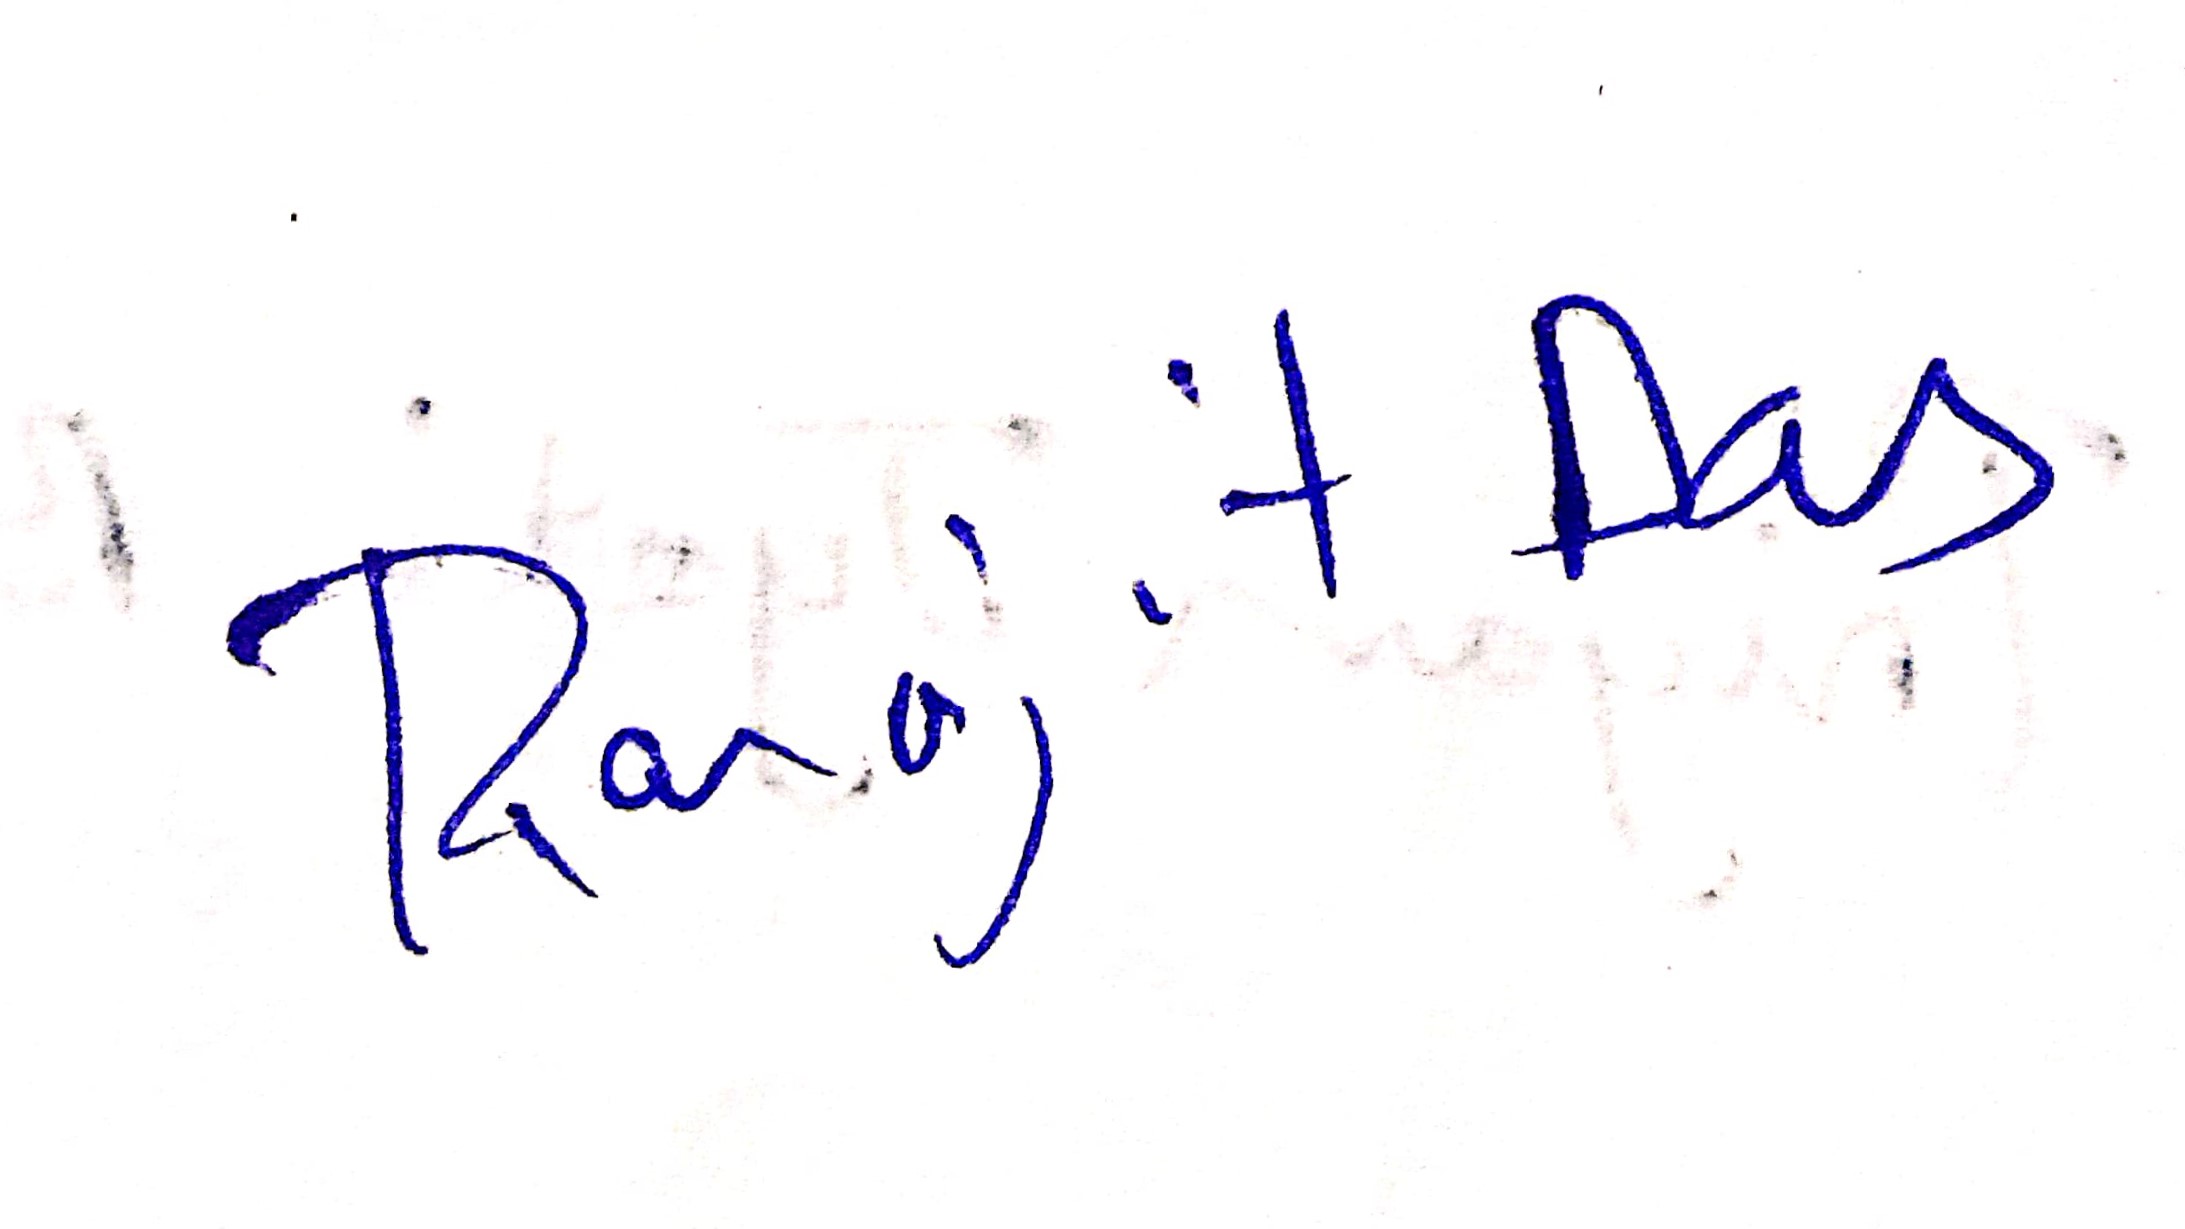 Ranajit Das